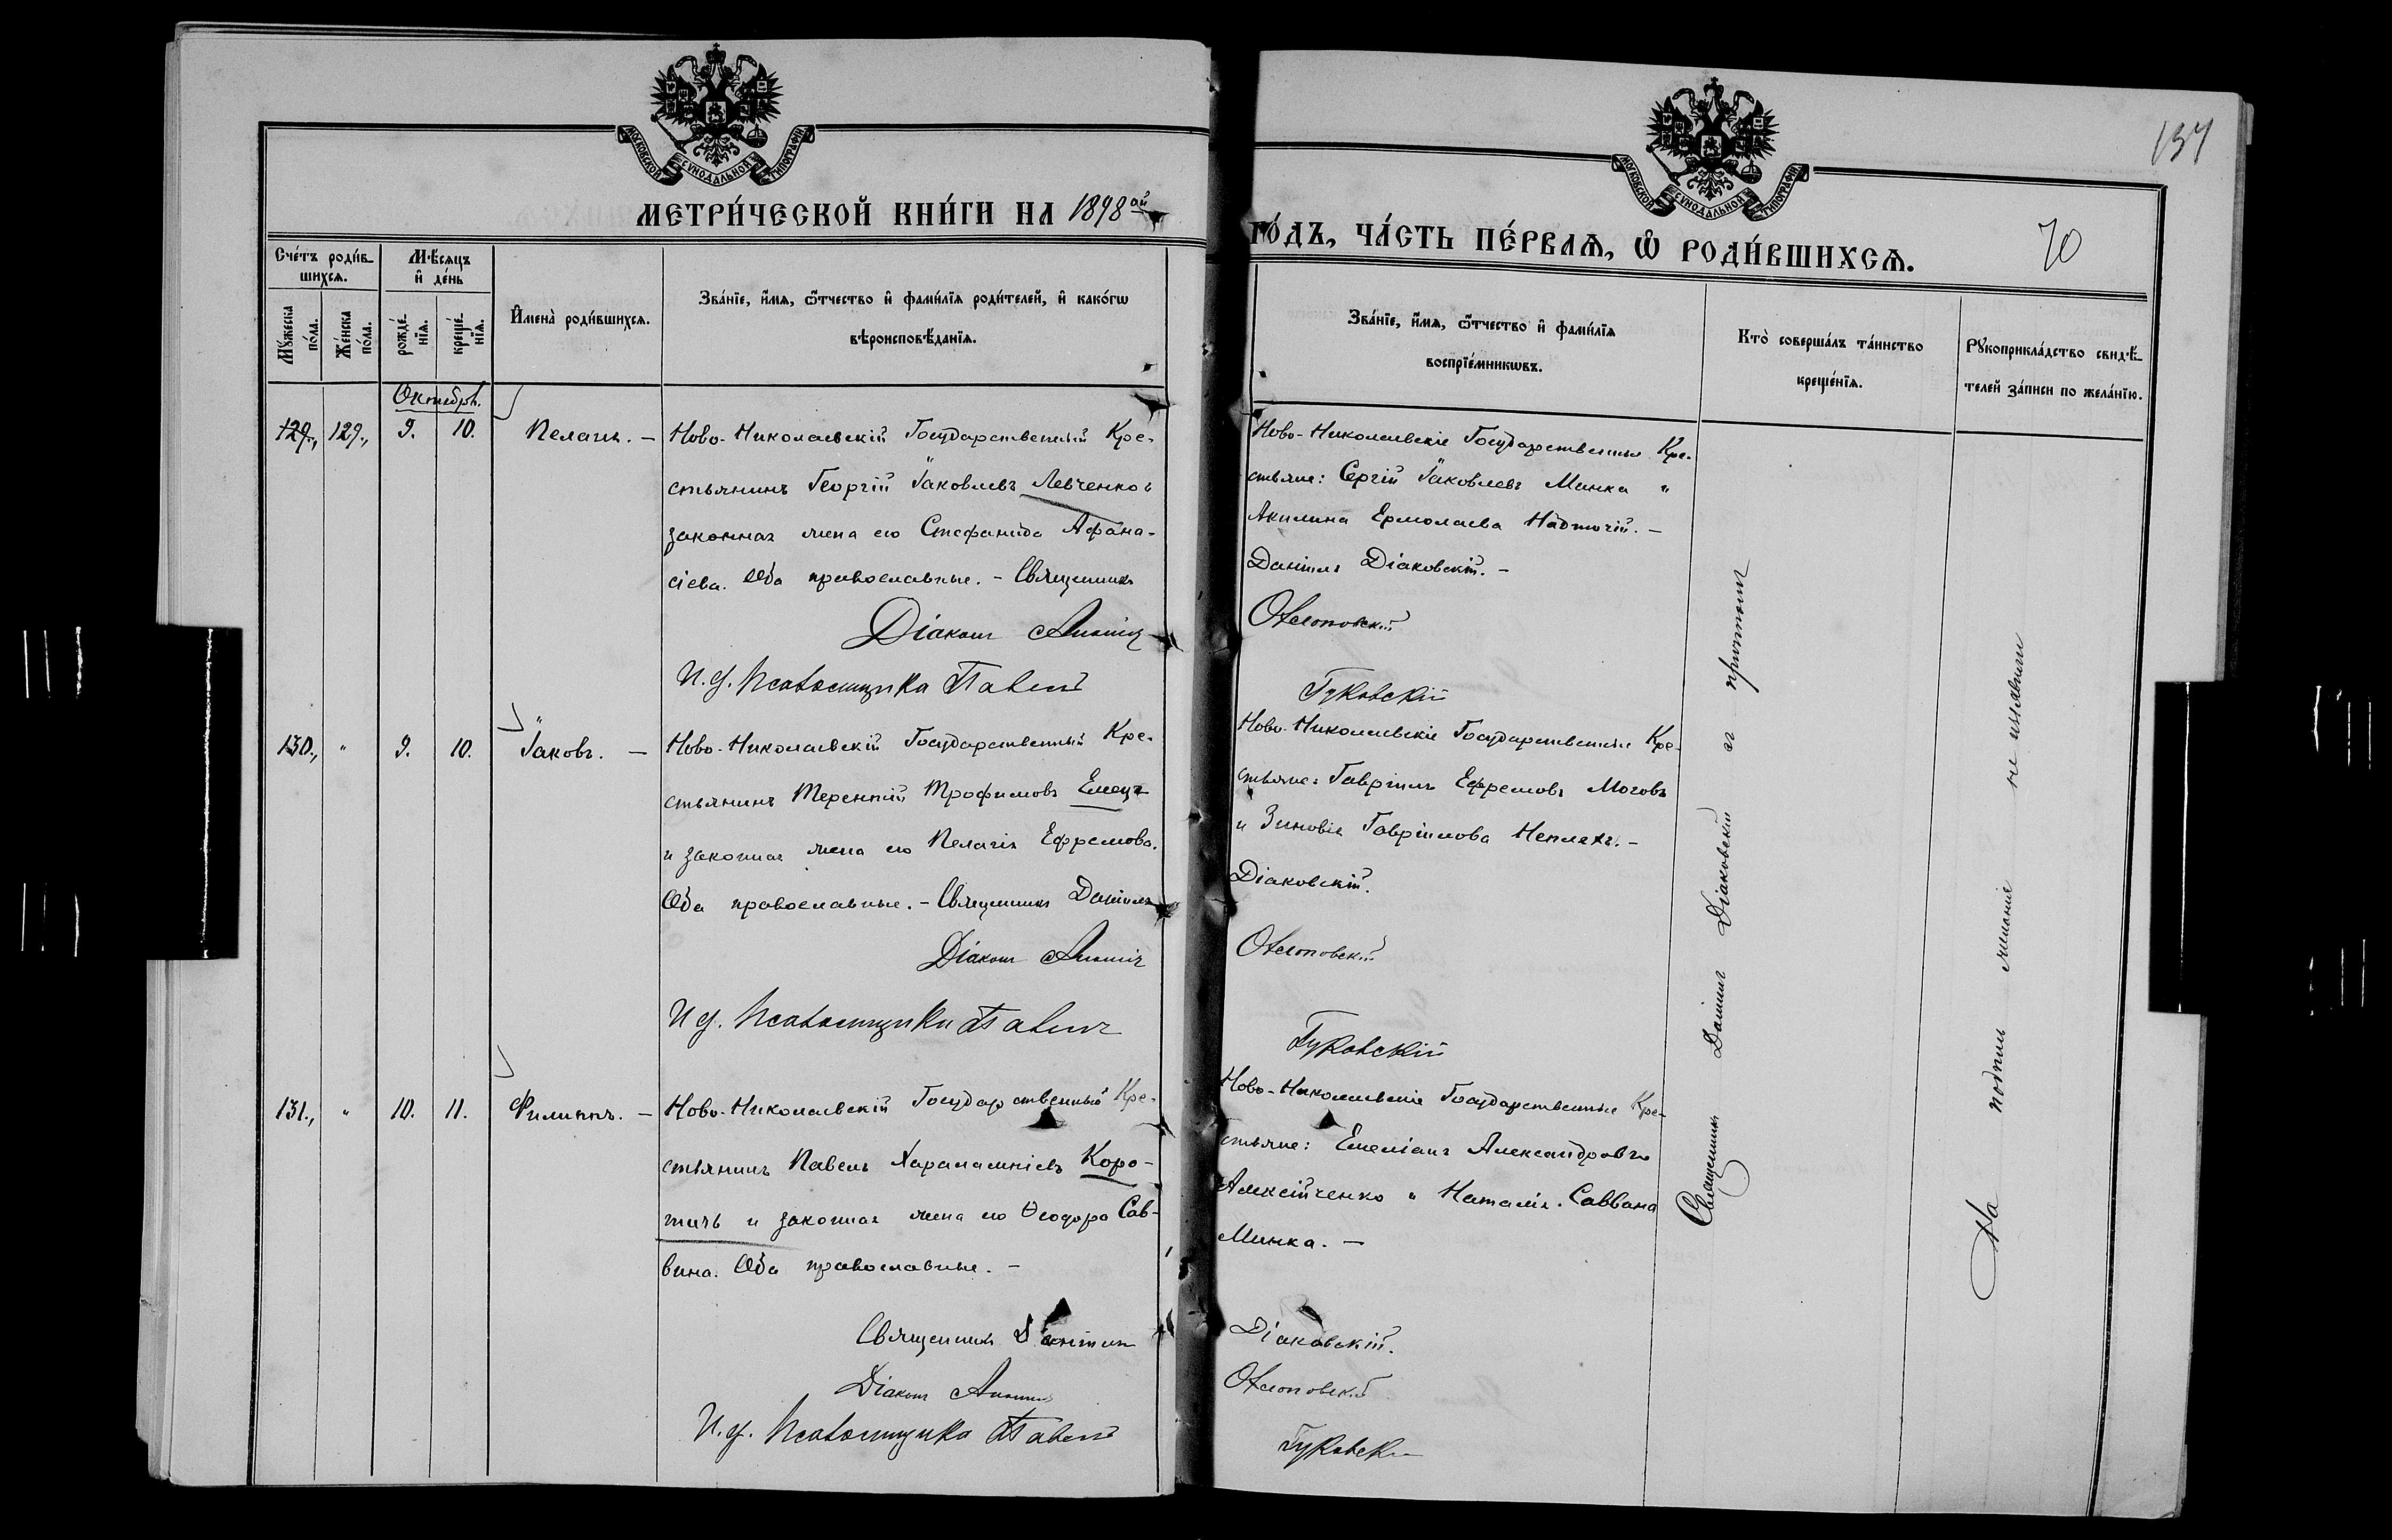 МОСКОВСКОЙ СѴНОДАЛЬНОЙ ТИПОГРАФІИ
МЕТРИ́ЧЕСКОЙ КНИ́ГИ НА 1898 ой
Сче́тъ роди́в-
шихся.
Мѣ́сяцъ
и҆ де́нь
Мꙋ́жеска
по́ла.
Же́нска
по́ла.
рожде́-
нїя.
креще́-
нїя.
И҆мена̀ роди́вшихся.
Зва́нїе, и҆́мя, ѻ҆́тчество и҆ фами́лїя роди́телей, и҆ како́гѡ
вѣроисповѣ́данїя.
Октябрь.
129., 129., 9. 10. Пелагія. –
Ново-Николаевскій Государственный Кре-
стьянинъ Георгій Іаковлевъ Левченко и
законная жена его Стефанида Афана-
сіева. Оба православные. – Священникъ
Діаконъ
И.д. Псаломщика Павелъ
130., " 9. 10. Іаковъ. –
Ново-Николаевскій Государственный Кре-
стьянинъ Терентій Трофимовъ Емецъ
и законная жена его Пелагія Ефремова.
Оба православные. – Священникъ Даніилъ
Діаконъ
И.д. Псаломщика Павелъ
131., " 10. 11. Филиппъ. –
Ново-Николаевскій Государственный Кре-
стьянинъ Павелъ Харалампіевъ Коро-
тичъ и законная жена его Ѳеодора Сав-
вина. Оба православные. –
Священникъ Даніилъ
Діаконъ
И.д. Псаломщика Павелъ
137
МОСКОВСКОЙ СѴНОДАЛЬНОЙ ТИПОГРАФІИ
ГО́ДЪ, ЧА́СТЬ ПЕ́РВАЯ, Ѡ҆ РОДИ́ВШИХСЯ.
70
Зва́нїе, и҆́мя, ѻ҆́тчество и҆ фами́лїя
воспрїе́мникѡвъ.
Кто̀ соверша́лъ та́инство
креще́нїя.
Рꙋкоприкла́дство свидѣ́-
телей за́писи по жела́нїю.
Ново-Николаевскіе Государственные Кре-
стьяне: Сергій Іаковлевъ Минка и
Акилина Ермолаева Надточій. –
Даніилъ Діаковскій. –
Гуковскій
Ново-Николаевскіе Государственные Кре-
стьяне: Гавріилъ Ефремовъ Моговъ
и Зиновія Гавріилова Непляхъ. –
Діаковскій.
Гуковскій
Ново-Николаевскіе Государственные Кре-
стьяне: Емеліанъ Александровъ
Алексійченко и Наталія Саввина
Минка. –
Діаковскій.
Гуковскій
Священникъ Даніилъ Діаковскій съ причтомъ
На подпись желаніе не изъявили